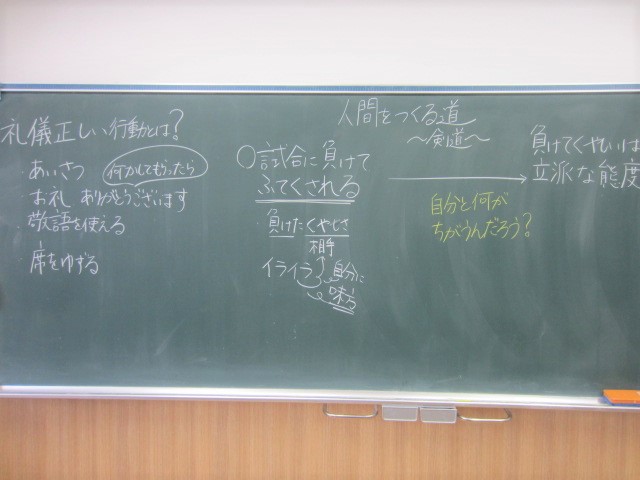 人間をつくる道
〜剣道〜
礼儀正しい行動とは?
・あいさつ
何かしてもらったら
お礼 ありがとうございます
・敬語を使える
・席をゆずる
○試合に負けて
ふてくされる
・負けたくやしさ
相手
イライラ
自分に
味方
自分と何が
ちがうんだろう?
負けてくやしいは
立派な態度